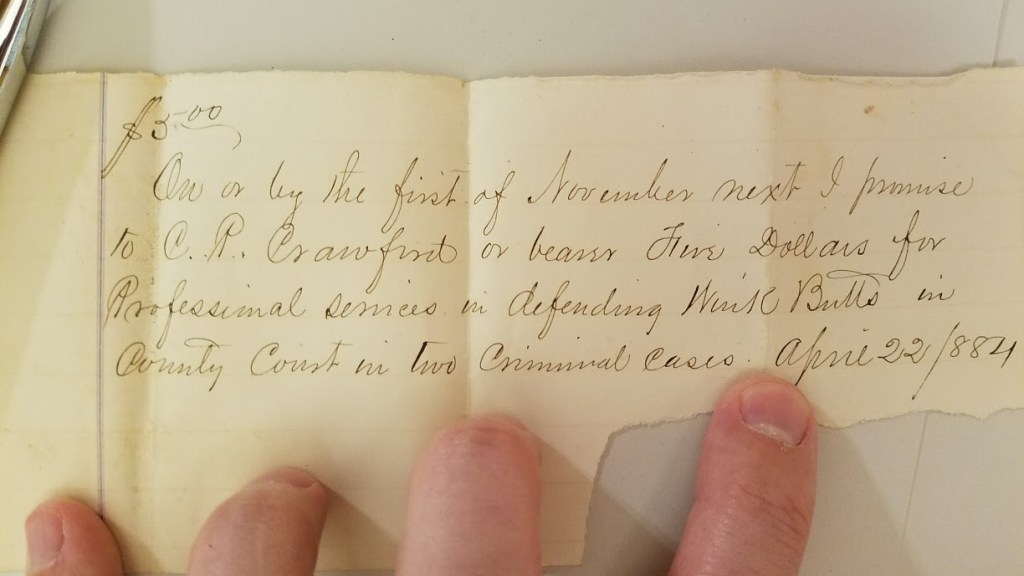 $5.00
On or by the first of November next I promise
to C. R. Crawford or bearer Five Dollars for
Professional services in defending Wink Butts in
County Court in two Criminal cases. April 22/1884